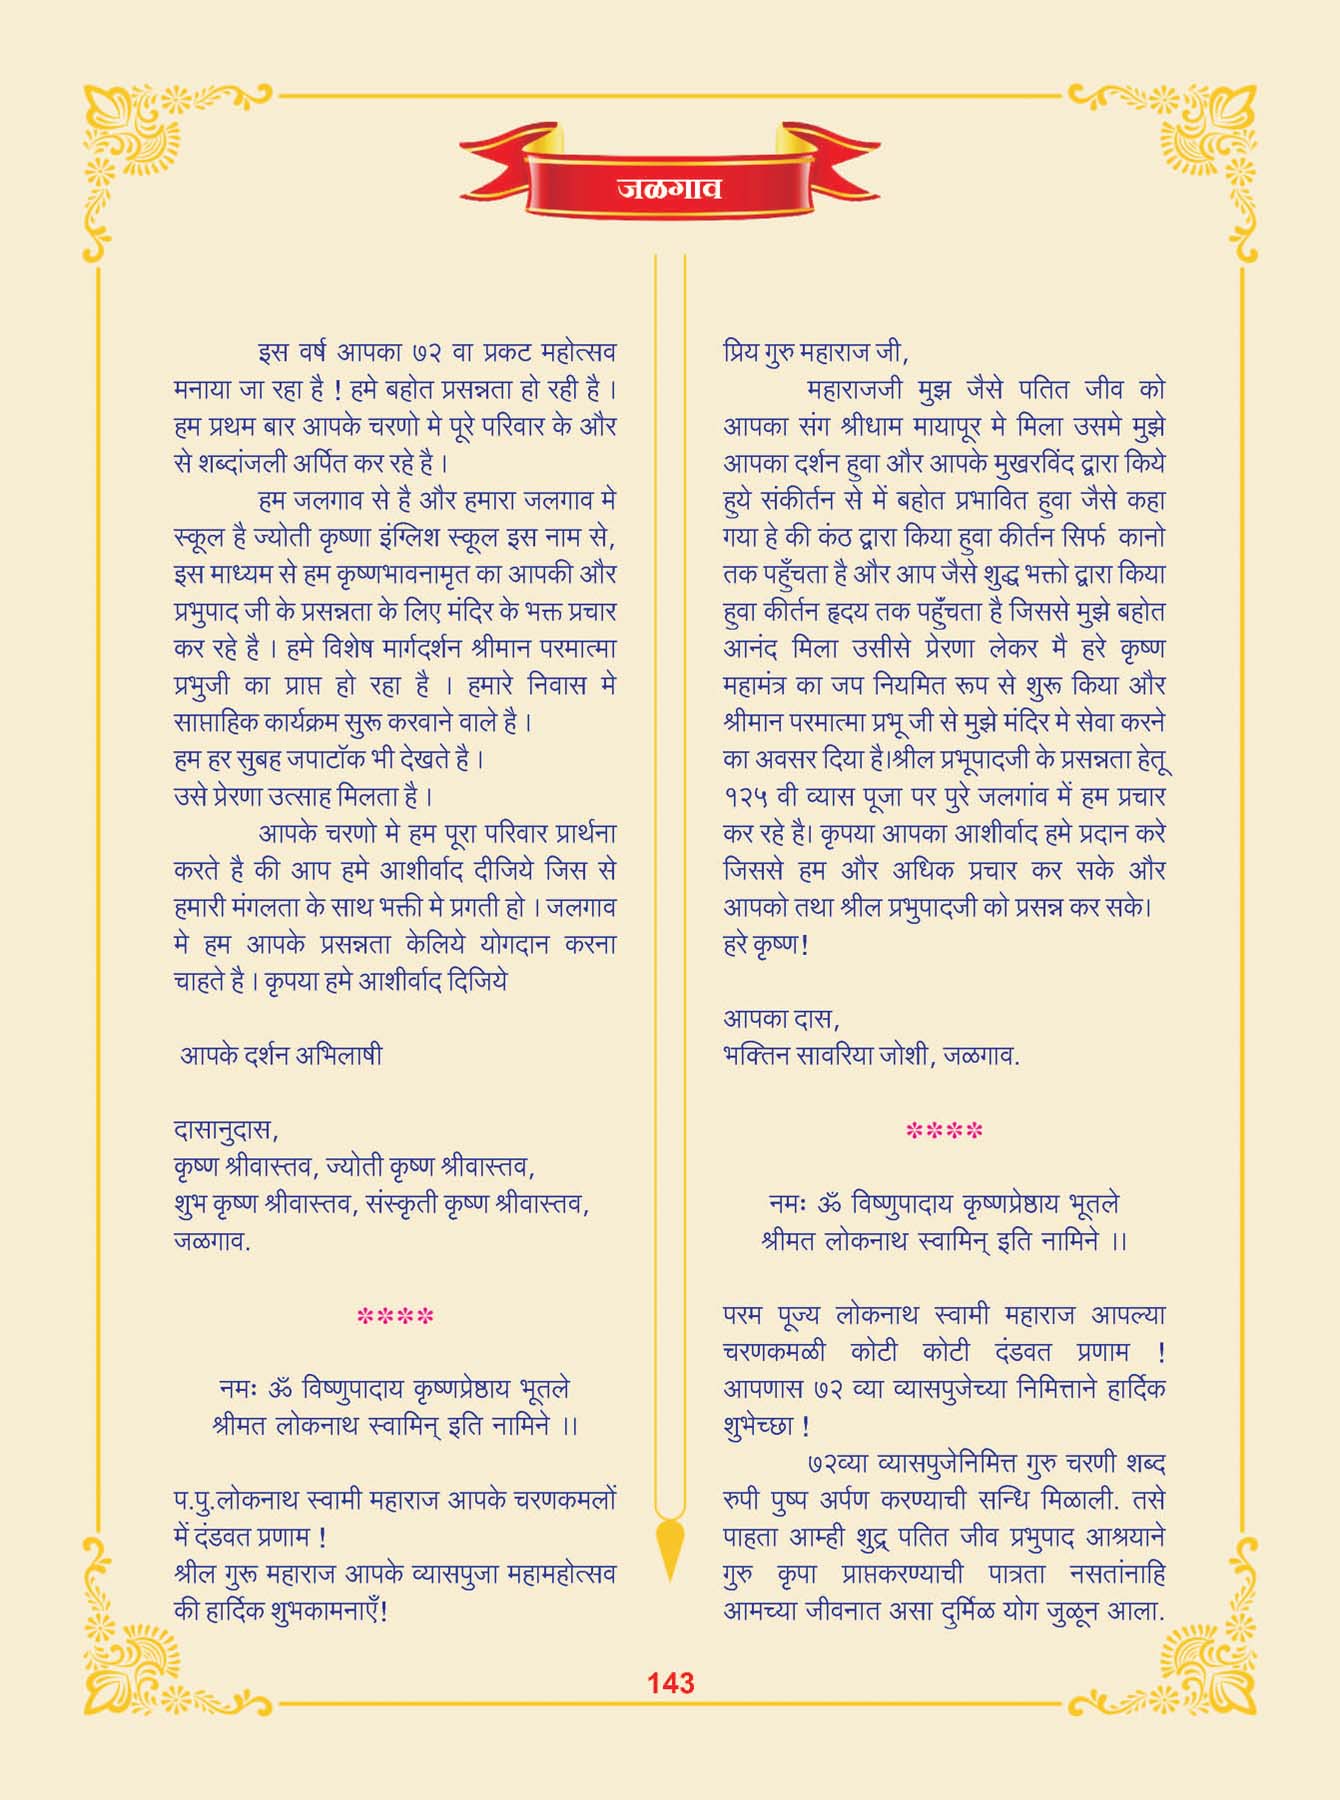 जळगाव
इस वर्ष आपका ७२ वा प्रकट महोत्सव
मनाया जा रहा है ! हमे बहोत प्रसन्नता हो रही है ।
हम प्रथम बार आपके चरणो मे पूरे परिवार के और
से शब्दांजली अर्पित कर रहे है ।
हम जलगाव से है और हमारा जलगाव मे
स्कूल है ज्योती कृष्णा इंग्लिश स्कूल इस नाम से,
इस माध्यम से हम कृष्णभावनामृत का आपकी और
प्रभुपाद जी के प्रसन्नता के लिए मंदिर के भक्त प्रचार
कर रहे है । हमे विशेष मार्गदर्शन श्रीमान परमात्मा
प्रभुजी का प्राप्त हो रहा है । हमारे निवास मे
साप्ताहिक कार्यक्रम सुरू करवाने वाले है ।
हम हर सुबह जपाटॉक भी देखते है ।
उसे प्रेरणा उत्साह मिलता है ।
आपके चरणो मे हम पूरा परिवार प्रार्थना
करते है की आप हमे आशीर्वाद दीजिये जिस से
हमारी मंगलता के साथ भक्ती मे प्रगती हो । जलगाव
मे हम आपके प्रसन्नता केलिये योगदान करना
चाहते है । कृपया हमे आशीर्वाद दिजिये
आपके दर्शन अभिलाषी
दासानुदास,
कृष्ण श्रीवास्तव, ज्योती कृष्ण श्रीवास्तव,
शुभ कृष्ण श्रीवास्तव, संस्कृती कृष्ण श्रीवास्तव,
जळगाव.
****
नमः ॐ विष्णुपादाय कृष्णप्रेष्ठाय भूतले
श्रीमत लोकनाथ स्वामिन् इति नामिने ।।
प.पु.लोकनाथ स्वामी महाराज आपके चरणकमलों
में दंडवत प्रणाम !
श्रील गुरू महाराज आपके व्यासपुजा महामहोत्सव
की हार्दिक शुभकामनाएँ!
प्रिय गुरु महाराज जी,
महाराजजी मुझ जैसे पतित जीव को
आपका संग श्रीधाम मायापूर मे मिला उसमे मुझे
आपका दर्शन हुवा और आपके मुखरविंद द्वारा किये
हुये संकीर्तन से में बहोत प्रभावित हुवा जैसे कहा
गया हे की कंठ द्वारा किया हुवा कीर्तन सिर्फ कानो
तक पहुँचता है और आप जैसे शुद्ध भक्तो द्वारा किया
हुवा कीर्तन हृदय तक पहुँचता है जिससे मुझे बहोत
आनंद मिला उसीसे प्रेरणा लेकर मै हरे कृष्ण
महामंत्र का जप नियमित रूप से शुरू किया और
श्रीमान परमात्मा प्रभू जी से मुझे मंदिर मे सेवा करने
का अवसर दिया है।श्रील प्रभूपादजी के प्रसन्नता हेतू
१२५ वी व्यास पूजा पर पुरे जलगांव में हम प्रचार
कर रहे है। कृपया आपका आशीर्वाद हमे प्रदान करे
जिससे हम और अधिक प्रचार कर सके और
आपको तथा श्रील प्रभुपादजी को प्रसन्न कर सके।
हरे कृष्ण!
आपका दास,
भक्तिन सावरिया जोशी, जळगाव.
****
नमः ॐ विष्णुपादाय कृष्णप्रेष्ठाय भूतले
श्रीमत लोकनाथ स्वामिन् इति नामिने ।।
परम पूज्य लोकनाथ स्वामी महाराज आपल्या
चरणकमळी कोटी कोटी दंडवत प्रणाम !
आपणास ७२ व्या व्यासपुजेच्या निमित्ताने हार्दिक
शुभेच्छा !
७२व्या व्यासपुजेनिमित्त गुरु चरणी शब्द
रुपी पुष्प अर्पण करण्याची सन्धि मिळाली. तसे
पाहता आम्ही शुद्र पतित जीव प्रभुपाद आश्रयाने
गुरु कृपा प्राप्तकरण्याची पात्रता नसतांनाहि
आमच्या जीवनात असा दुर्मिळ योग जुळून आला.
143